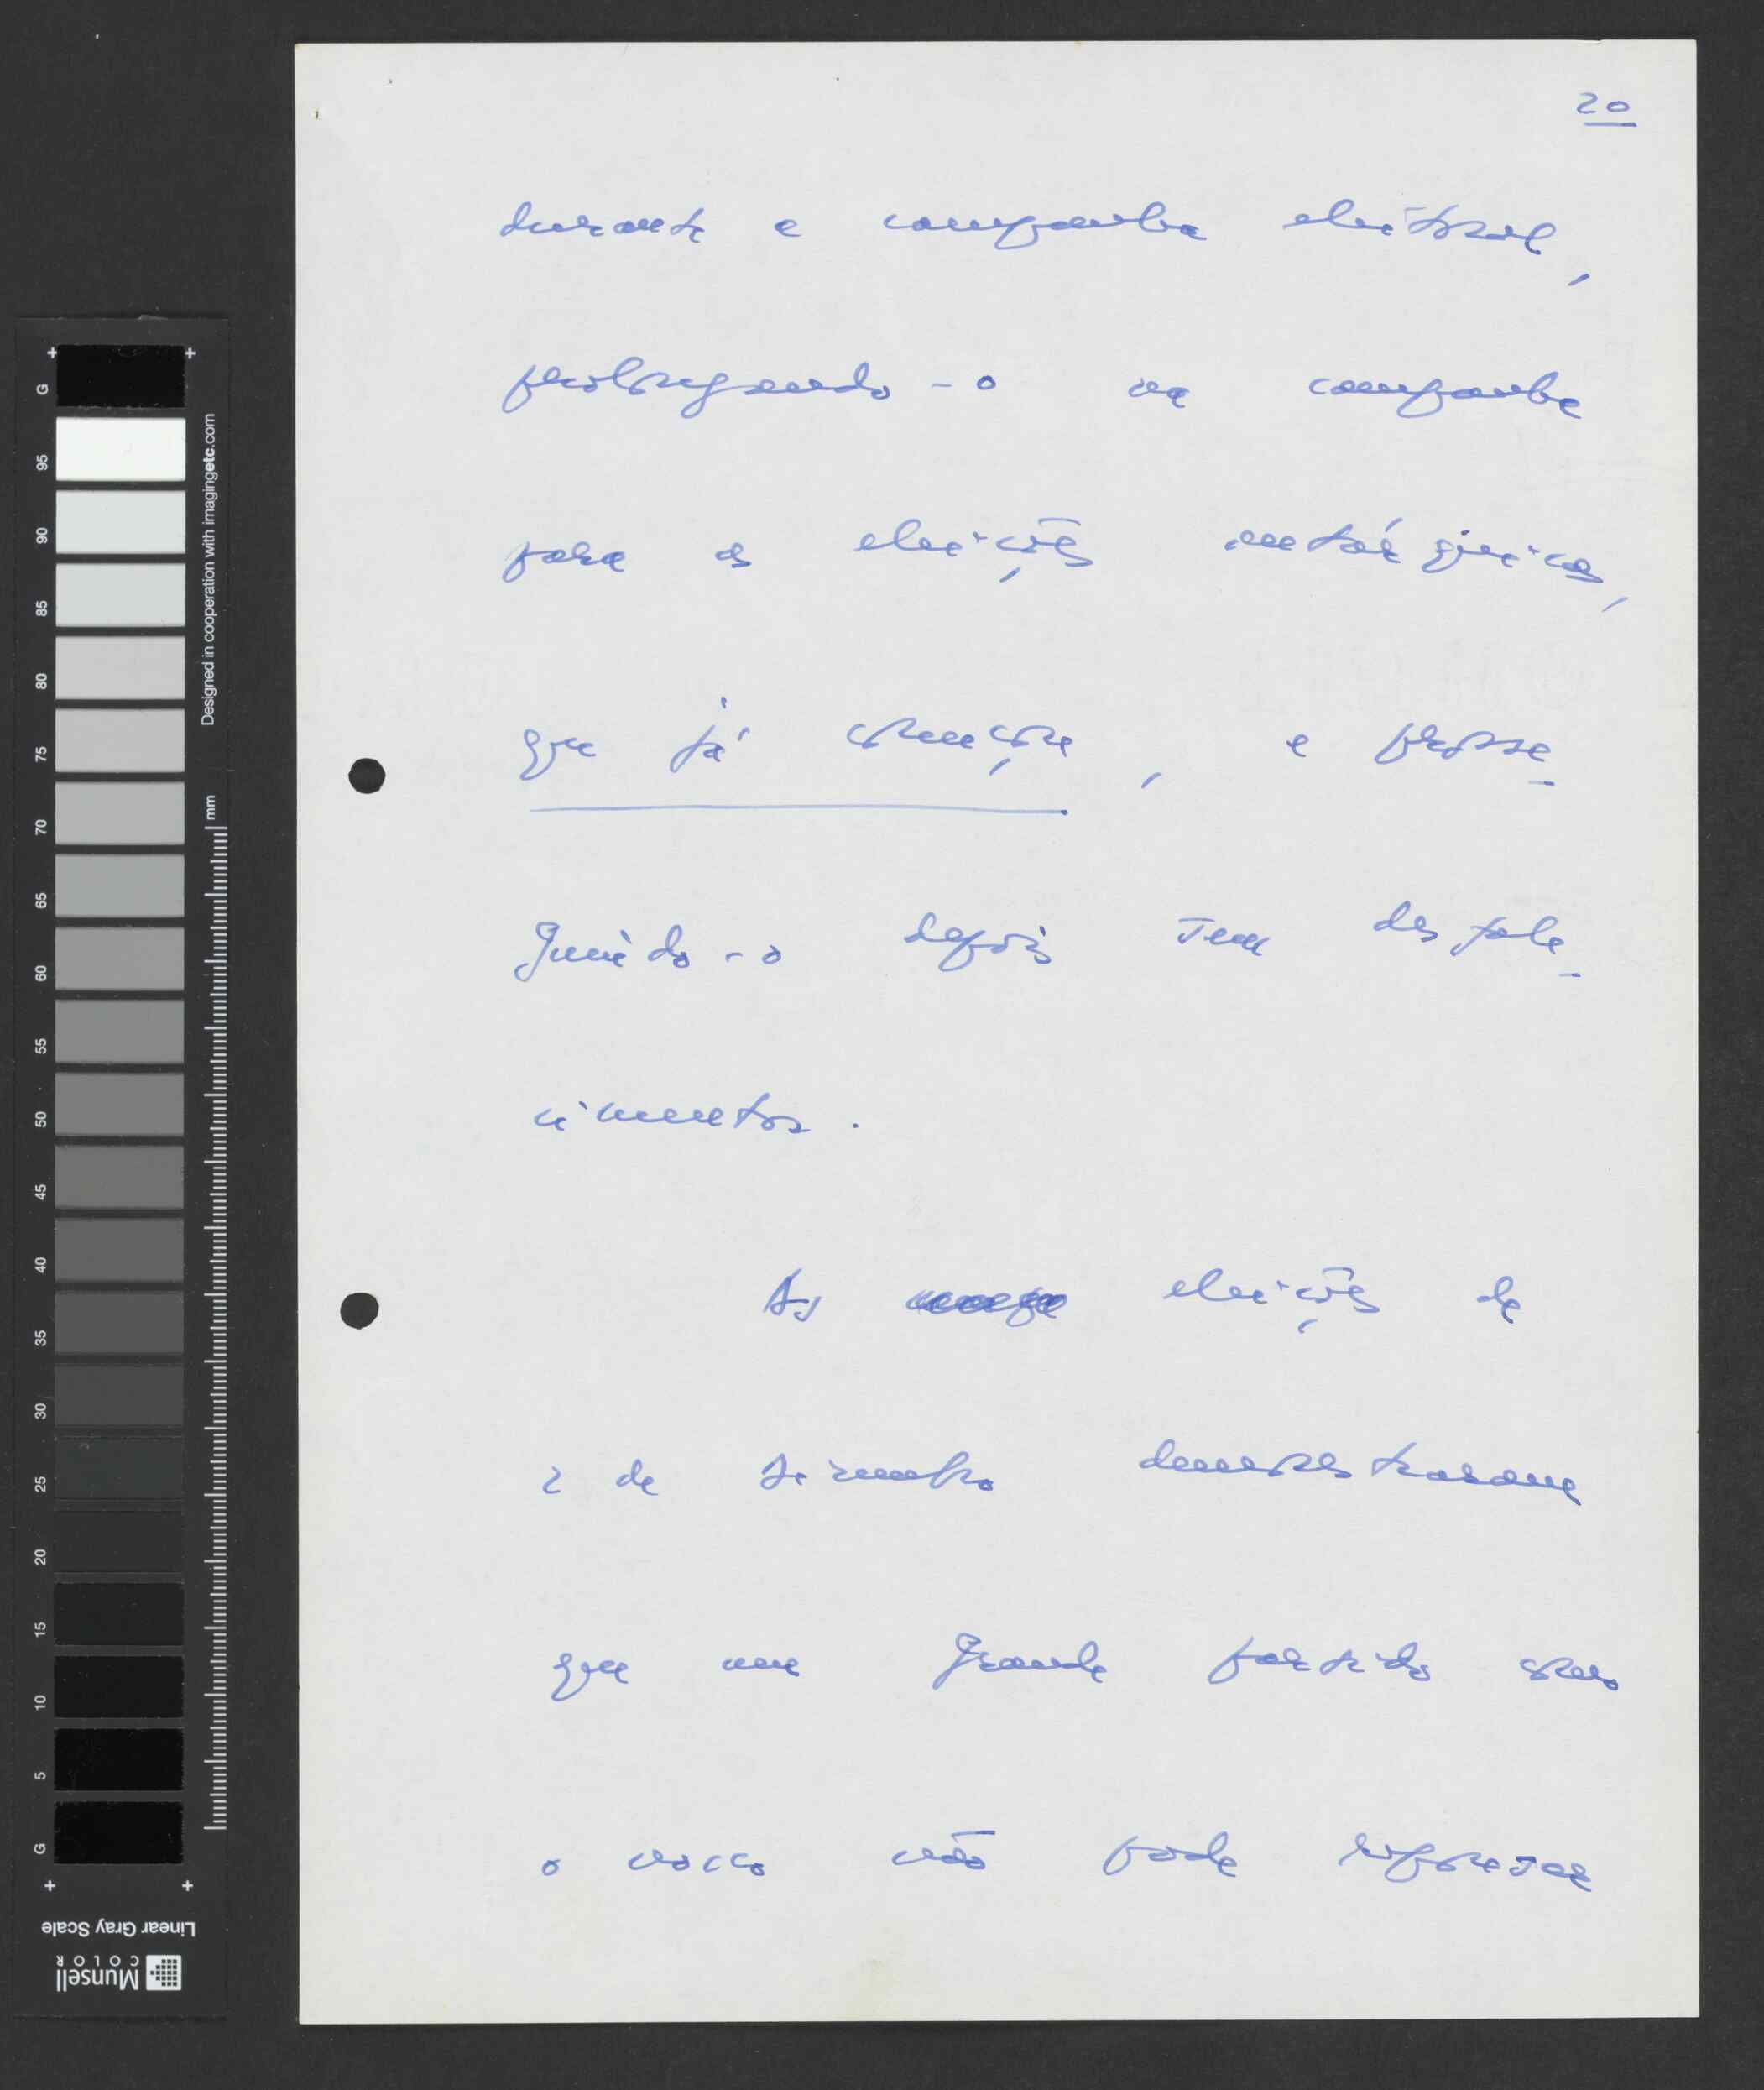 20
durante a campanha eleitoral,
prolongando-o na campanha
para as eleições autárquicas,
que já começou, e prosse-
guindo-o depois sem desfale-
cimentos.
As eleições de
2 de dezembro demonstraram
que um grande partido como
o nosso não pode repousar
G
95
90
85
80
75
70
65
60
55
50
45
40
35
30
25
20
15
10
5
G
Designed in cooperation with imagingetc.com
mm
Linear Gray Scale
Munsell
COLOR